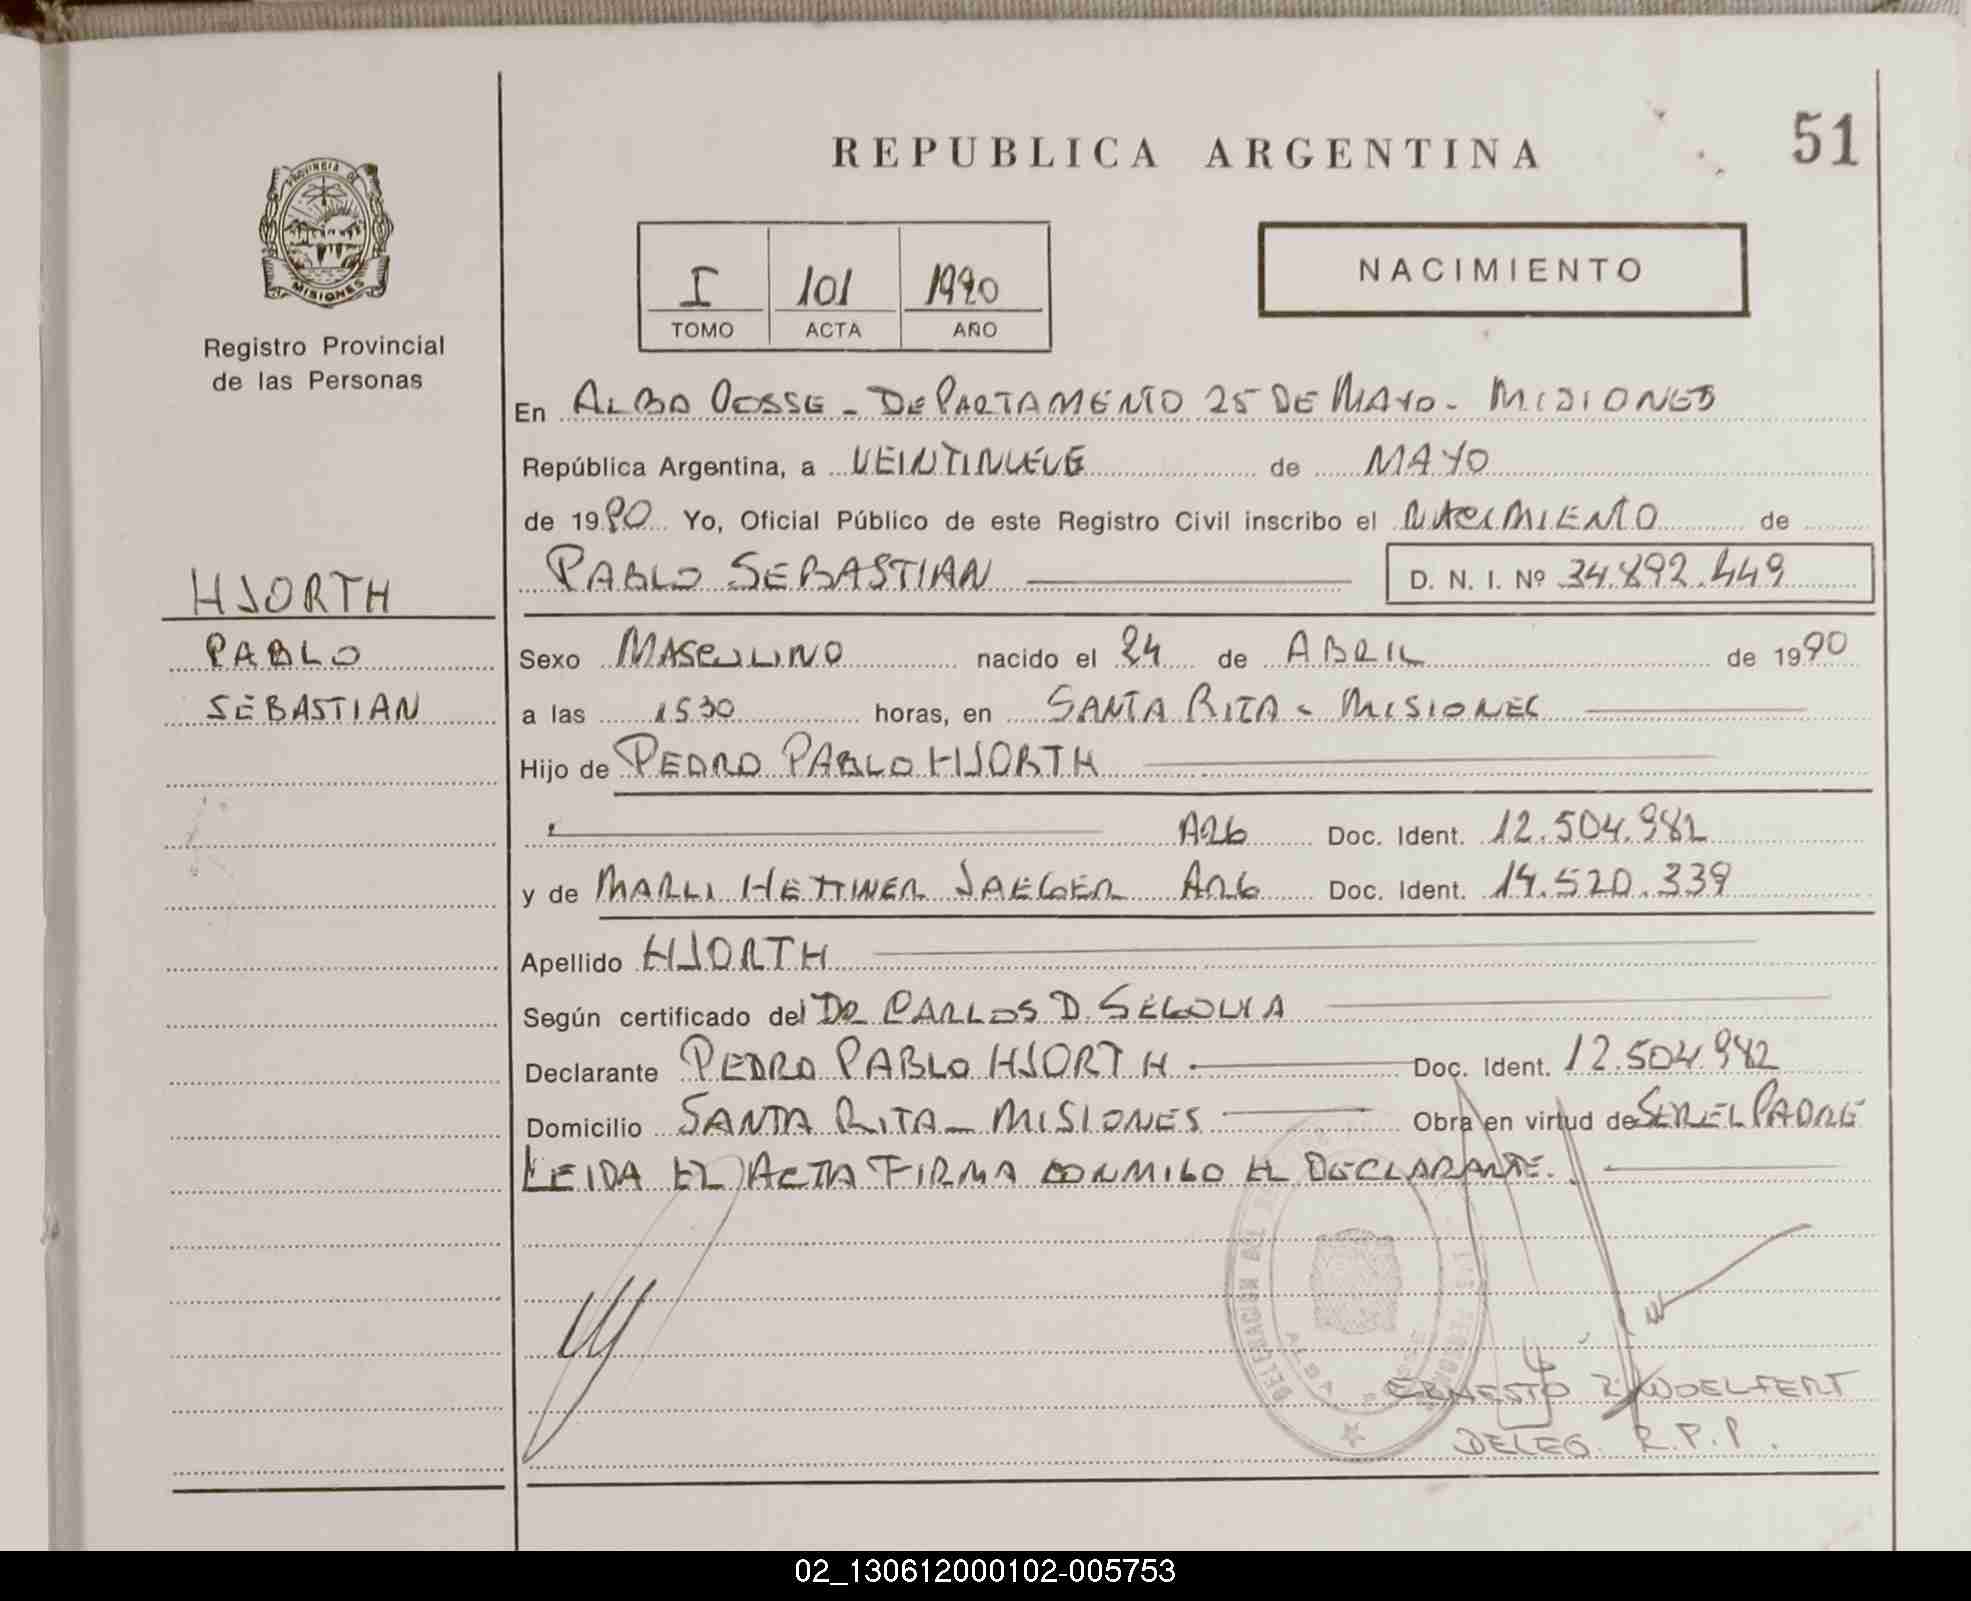 REPUBLICA ARGENTINA
51
PROVINCIA DE
MISIONES
Registro Provincial
de las Personas
I 101 1990
TOMO ACTA AÑO
NACIMIENTO
En ALBA POSSE - DEPARTAMENTO 25 DE MAYO - MISIONES
República Argentina, a VEINTINUEVE de MAYO
de 1990 Yo, Oficial Público de este Registro Civil inscribo el NACIMIENTO de
PABLO SEBASTIAN D. N. I. Nº 34.892.449
HJORTH
PABLO
SEBASTIAN
Sexo MASCULINO nacido el 24 de ABRIL de 1990
a las 1530 horas, en SANTA RITA - MISIONES
Hijo de PEDRO PABLO HJORTH
ARG Doc. Ident. 12.504.982
y de MARLI HETTINER JAEGER ARG Doc. Ident. 14.520.339
Apellido HJORTH
Según certificado del DR CARLOS D. SEGOVIA
Declarante PEDRO PABLO HJORTH Doc. Ident. 12.504.982
Domicilio SANTA RITA - MISIONES Obra en virtud de SER EL PADRE
LEIDA EL ACTA FIRMA CONMIGO EL DECLARANTE.
DELEGACION DEL
ALBA POSSE
ERNESTO R WOELFERT
DELEG. R.P.P.
02_130612000102-005753